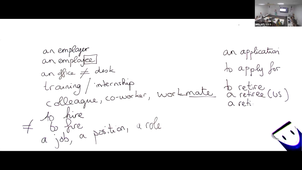 an employer
an employee
an office ≠ desk
training / internship
colleague, co-worker, workmate
to hire
≠ to fire
a job, a position, a role
an application
to apply for
to retire
a retiree (US)
a reti